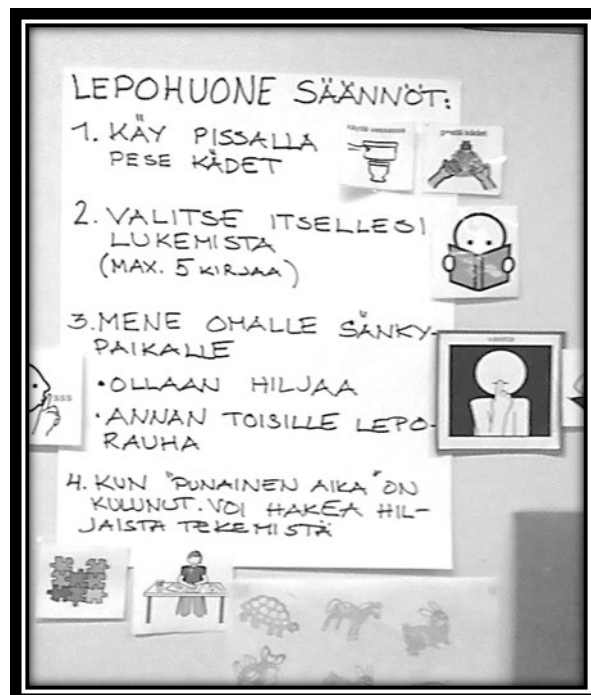 LEPOHUONE SÄÄNNÖT:
1. KÄY PISSALLA
PESE KÄDET
2. VALITSE ITSELLESI
LUKEMISTA
(MAX. 5 KIRJAA)
3. MENE OMALLE SÄNKY-
PAIKALLE
• OLLAAN HILJAA
• ANNAN TOISILLE LEPO-
RAUHA
4. KUN "PUNAINEN AIKA" ON
KULUNUT. VOI HAKEA HIL-
JAISTA TEKEMISTÄ
sss